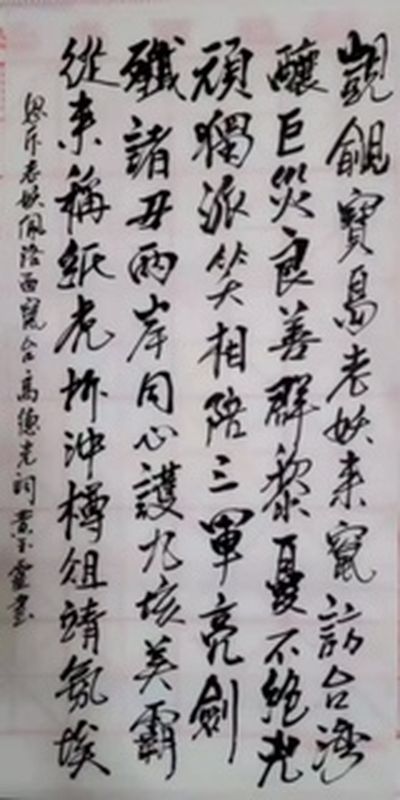 覬覦寶島老妖来竄訪台湾
釀巨災良善群黎憂不絶
頑獨派笑相陪三軍亮劍
殲諸丑兩岸同心護九垓美霸
從来稱紙虎折沖樽俎靖氛埃
怒斥老妖佩洛西竄台高德光詞 黄玉靈書